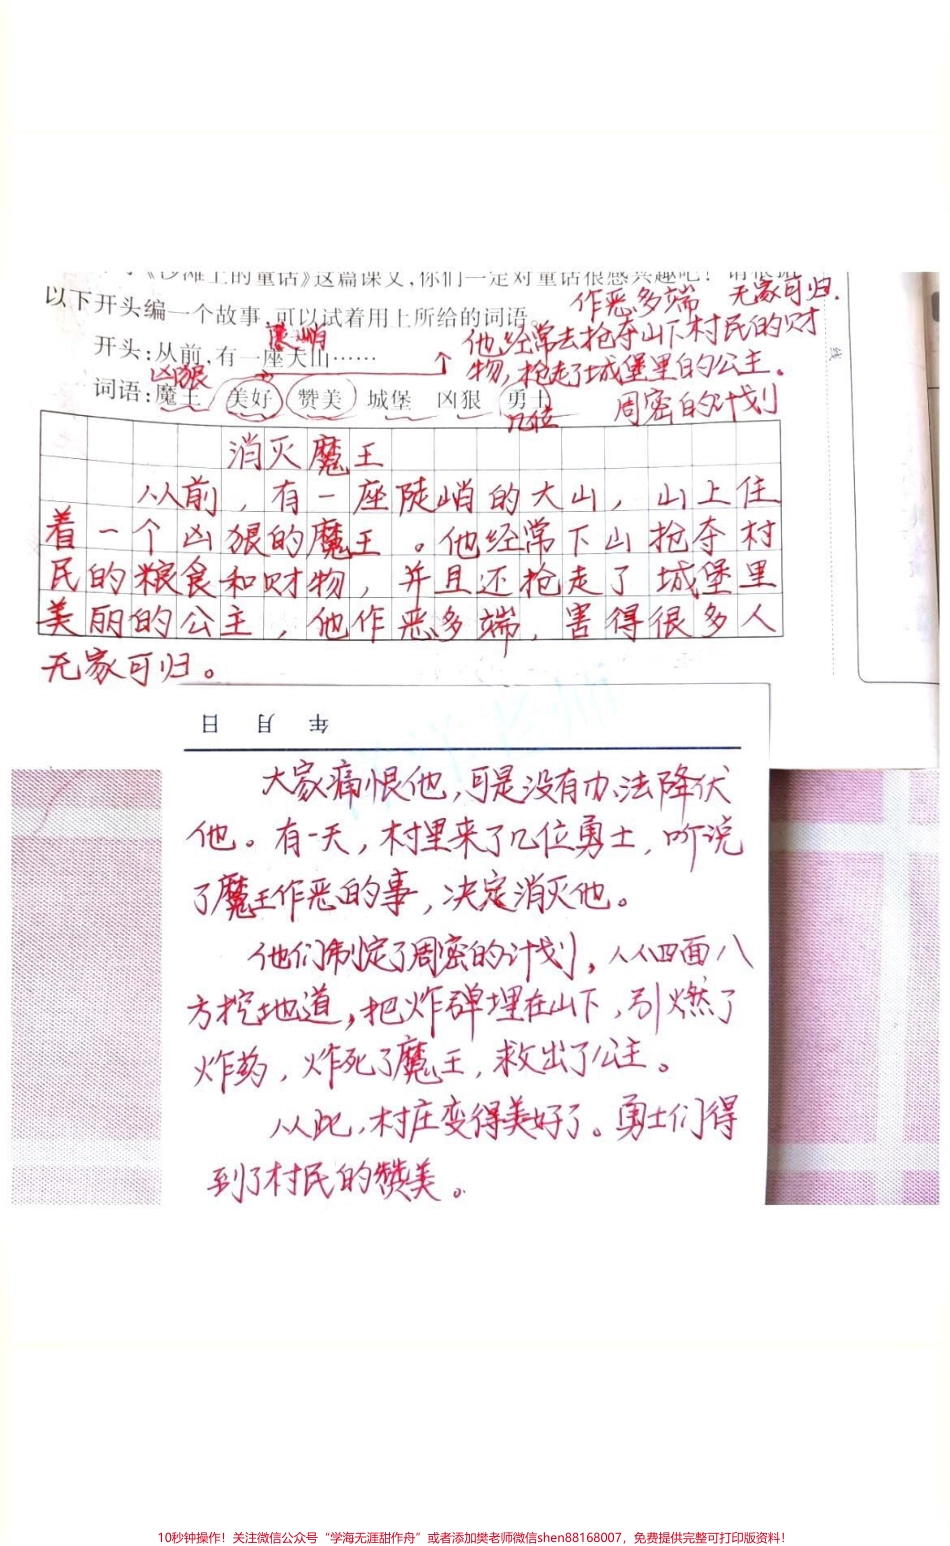 《沙滩上的童话》这篇课文,你们一定对童话很感兴趣吧!请根据
以下开头编一个故事,可以试着用上所给的词语。
作恶多端 无家可归.
陡峭
开头:从前,有一座大山……
他经常去抢夺山下村民的财
物,抢走了城堡里的公主.
凶狠
词语:魔王 美好 赞美 城堡 凶狠 勇士
几位
周密的计划
线
消灭魔王
从前,有一座陡峭的大山,山上住
着一个凶狠的魔王。他经常下山抢夺村
民的粮食和财物,并且还抢走了城堡里
美丽的公主,他作恶多端,害得很多人
无家可归。
年 月 日
大家痛恨他,可是没有办法降伏
他。有一天,村里来了几位勇士,听说
了魔王作恶的事,决定消灭他。
他们制定了周密的计划,从四面八
方挖地道,把炸弹埋在山下,引燃了
炸药,炸死了魔王,救出了公主。
从此,村庄变得美好了。勇士们得
到了村民的赞美。
10秒钟操作!关注微信公众号“学海无涯甜作舟”或者添加樊老师微信shen88168007,免费提供完整可打印版资料!